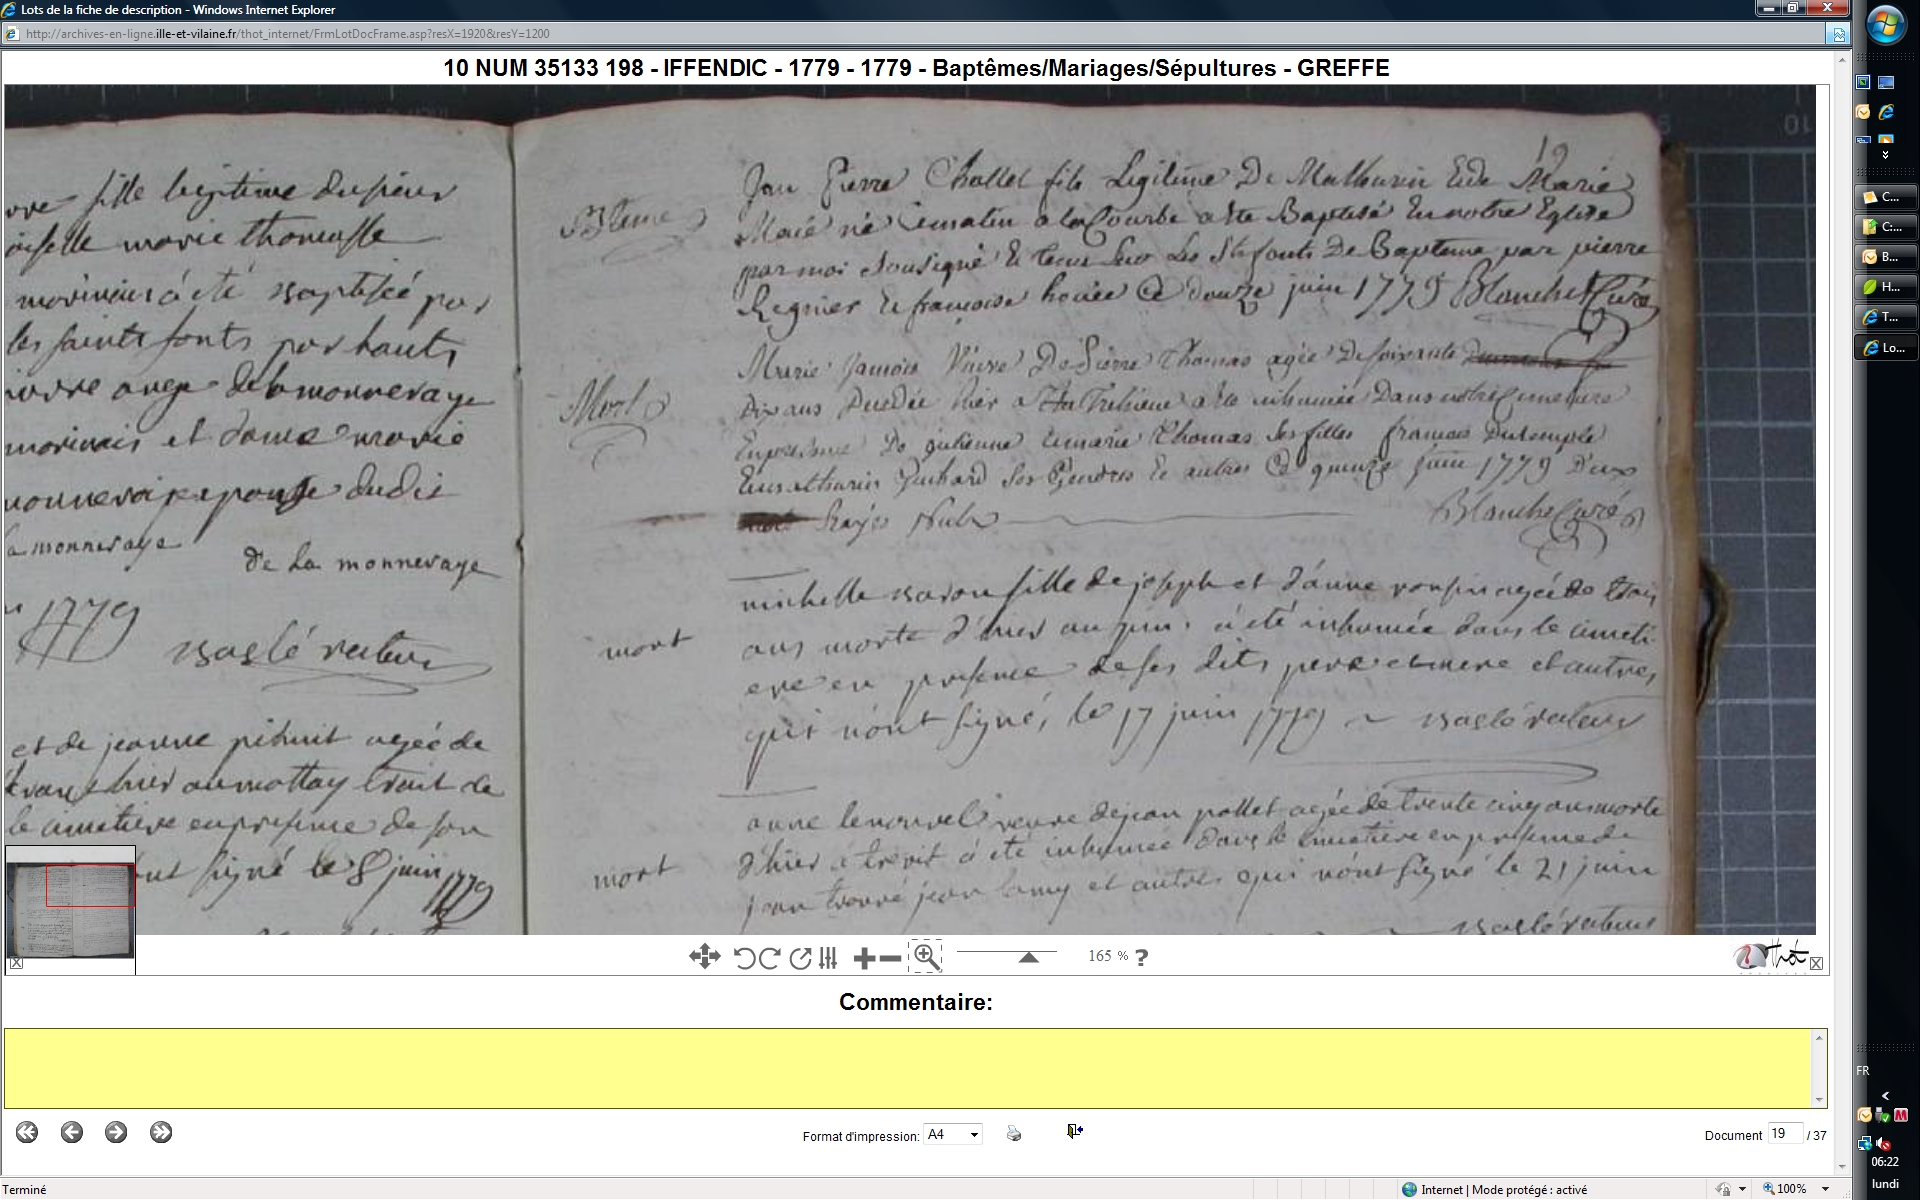 Lots de la fiche de description - Windows Internet Explorer
http://archives-en-ligne.ille-et-vilaine.fr/thot_internet/FrmLotDocFrame.asp?resX=1920&resY=1200
10 NUM 35133 198 - IFFENDIC - 1779 - 1779 - Baptêmes/Mariages/Sépultures - GREFFE
fille legitime du sieur
marie thomasse
a été baptisée par
les saints fonts par haut
ange de la monneraye
et dame marie
epouse dudit
la monneraye
de La monneraye
1779
recteur
et de jeanne agée de
hier au mottay trait de
le cimetière en presence de son
signé le 8 juin
1779
19
Jan Pierre Challet fils Legitime De Mathurin Et de Marie
Macé né Cematin a la Courbe a Ete Baptisé En notre Eglise
par moi Sousigné Et tenu Sur Les Sts fonts De Bapteme par pierre
Regnier Et françoise houée Ce douze juin 1779 Blanche Curé
Mort
Marie Jamois Veuve De Pierre Thomas agée De soixante
Dix ans Decedée hier a a Ete inhumée Dans notre Cimetiere
En presence De julienne Et marie Thomas Ses filles francois Dutemple
Et mathurin Guihard Ses Gendres Et autres Ce quinze juin 1779 Deux
mots Rayés Nuls
Blanche Curé
mort
michelle fille de joseph et d'anne agée de trois
ans morte d'hier au a été inhumée dans le cimeti-
ere en presence de ses dits pere et mere et autres,
qui n'ont signé, le 17 juin 1779 recteur
mort
anne lenouvel veuve de jean pollet agée de trente cinq ans morte
d'hier à trévit a été inhumée dans le cimetière en presence de
jean jean lamy et autres qui n'ont signé le 21 juin
recteur
165 % ?
Commentaire:
Format d'impression: A4
Document 19 / 37
Terminé
Internet | Mode protégé : activé
100%
C...
C:...
B...
H...
T...
Lo...
FR
06:22
lundi